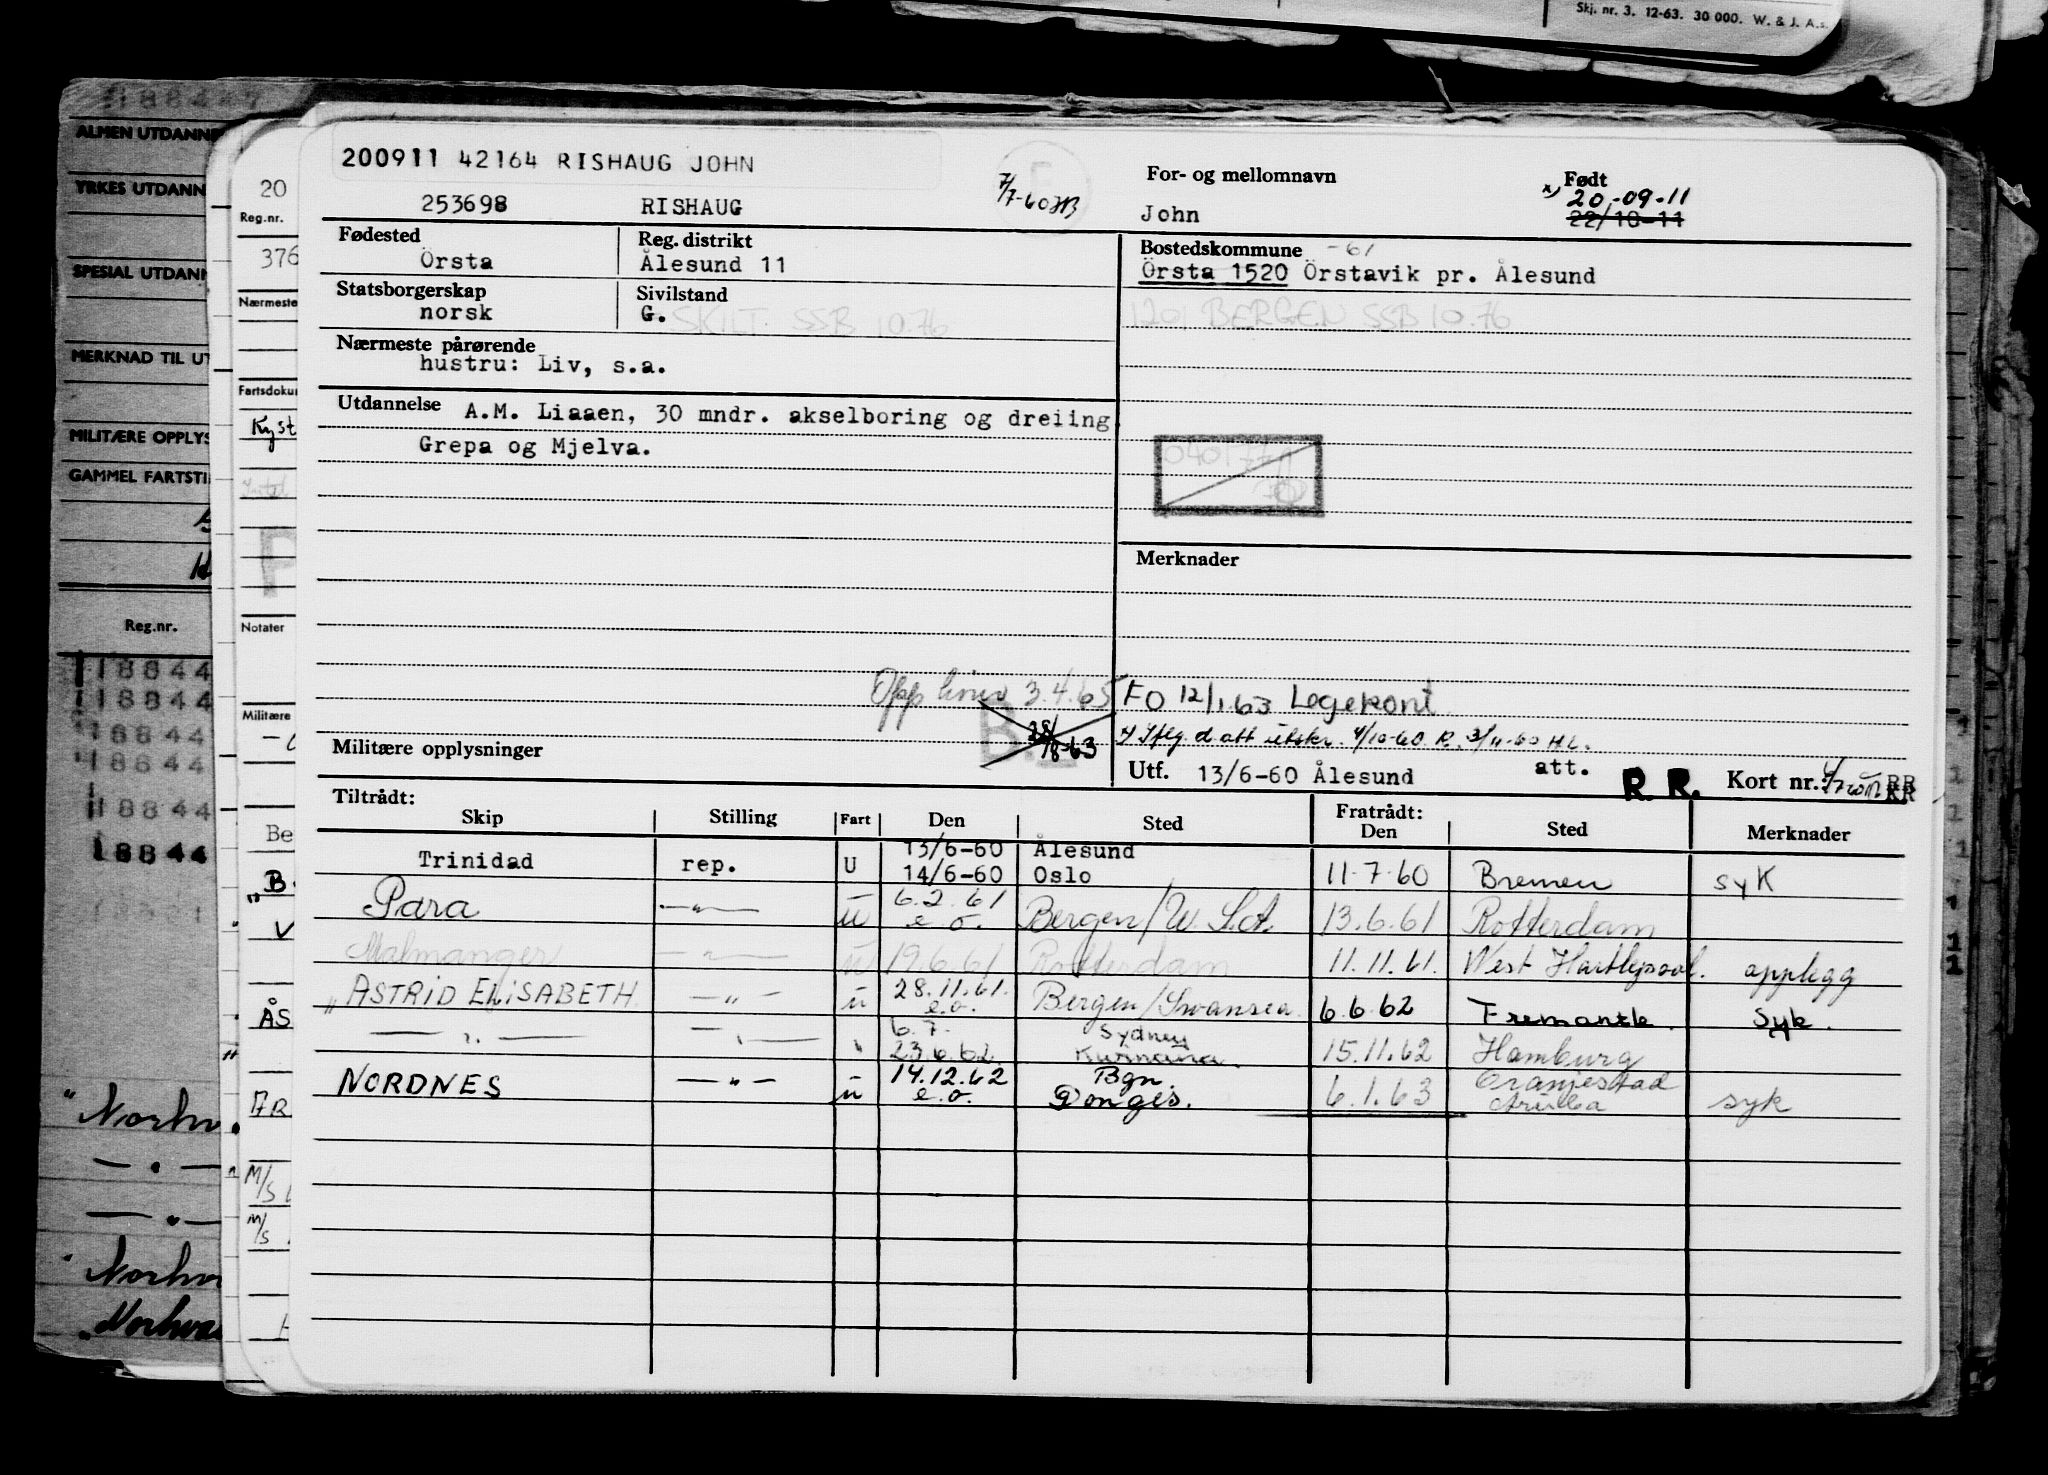 Skj. nr. 3. 12-63. 30 000. W. & J. A.s.
ALMEN UTDANNE
YRKES UTDANN
SPESIAL UTDANN
MERKNAD TIL UT
MILITÆRE OPPLYS
GAMMEL FARTSTI
Reg.nr.
118844
118844
118844
118844
118844
18844
20
Reg.nr.
376
Nærmeste
Fartsdokur
Kyst
Notater
Militære
Be
ÅS
AR
M/S
M/S
200911 42164 RISHAUG JOHN
7/7-60 HB
For- og mellomnavn
Født
x) 20.-09-11
253698 RISHAUG
John
22/10-11
Fødested
Reg. distrikt
Bostedskommune -61
Örsta
Ålesund 11
Örsta 1520 Örstavik pr. Ålesund
Statsborgerskap
Sivilstand
norsk
G.
SKILT SSB 10.76
1201 BERGEN SSB 10.76
Nærmeste pårørende
hustru: Liv, s.a.
Utdannelse A.M. Liaaen, 30 mndr. akselboring og dreiing
Grepa og Mjelva.
Merknader
3.4.65
FO 12/1.63 Legekont
28/8-63
Militære opplysninger
Utf. 13/6-60 Ålesund
att.
R. R.
Kort nr.: RR
Tiltrådt:
Fratrådt:
Skip Stilling Fart Den Sted Den Sted Merknader
Trinidad rep. U 13/6-60 Ålesund
14/6-60 Oslo 11-7-60 Bremen syk
Para —"— u 6.2.61 e.o. Bergen/W. S.A. 13.6.61 Rotterdam
Malmanger —"— u 19.6.61 Rotterdam 11.11.61. West Hartlepool. opplegg
" ASTRID ELISABETH —"— u 28.11.61. e.o. Bergen/Swansea 6.6.62 Fremantle. Syk.
—"— —"— " 6.7. Sydney
23.6.62 15.11.62 Hamburg
NORDNES —"— u 14.12.62 e.o. Bgn. Donges. 6.1.63 Oranjestad Aruba syk